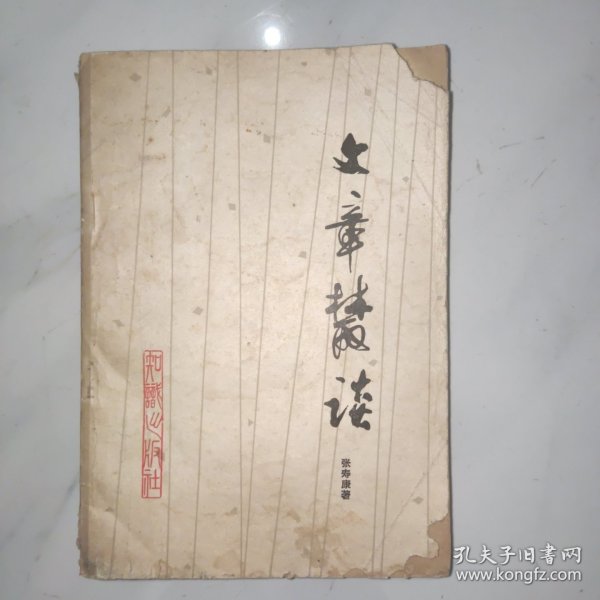 文章叢谈
张寿康著
知識出版社
孔夫子旧书网
www.kongfz.com